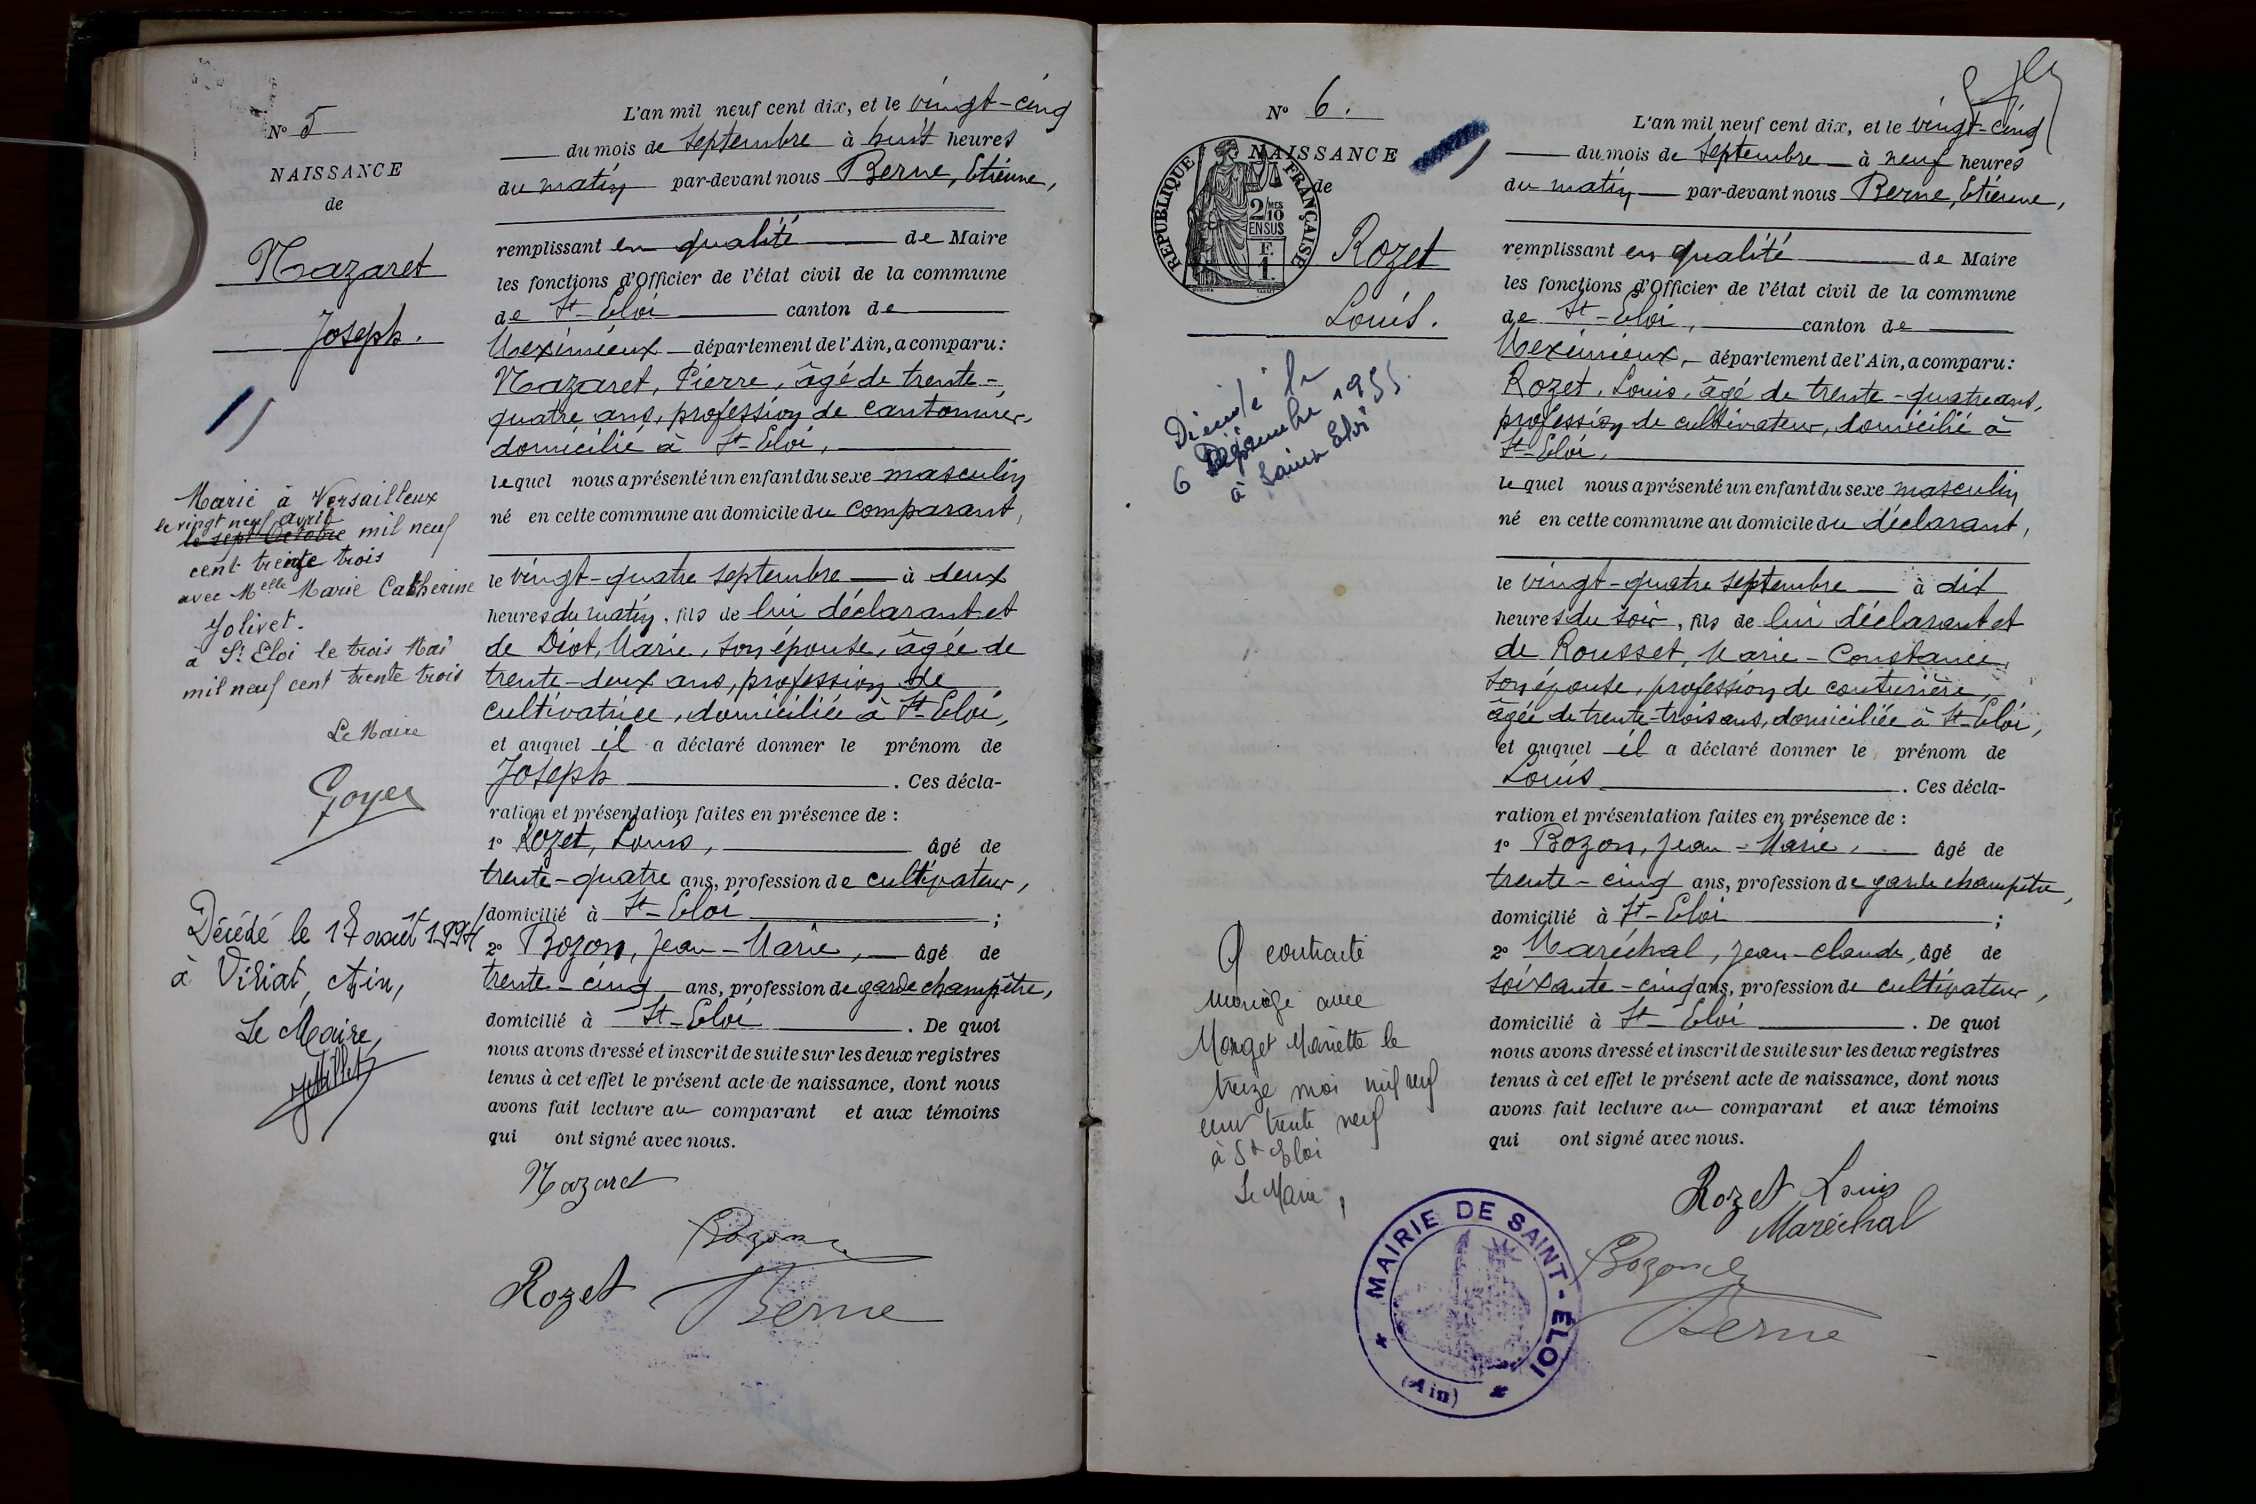 N° 5
NAISSANCE
de
Nazaret
Joseph.
Marié à Versailleux
le vingt neuf avril
le sept Octobre mil neuf
cent trente trois
avec Melle Marie Catherine
Jolivet.
à St Eloi le trois Mai
mil neuf cent trente trois
Le Maire
Goyer
Décédé le 17 août 1994
à Viriat, Ain,
Le Maire,
L'an mil neuf cent dix, et le vingt-cinq
du mois de septembre à huit heures
du matin par-devant nous Berne, Etienne,
remplissant en qualité de Maire
les fonctions d'Officier de l'état civil de la commune
de St-Eloi canton de
Meximieux département de l'Ain, a comparu:
Nazaret, Pierre, âgé de trente-
quatre ans, profession de cantonnier,
domicilié à St-Eloi,
lequel nous a présenté un enfant du sexe masculin
né en cette commune au domicile du comparant,
le vingt-quatre septembre à deux
heures du matin, fils de lui déclarant et
de Diot, Marie, son épouse, âgée de
trente-deux ans, profession de
cultivatrice, domiciliée à St-Eloi,
et auquel il a déclaré donner le prénom de
Joseph. Ces décla-
ration et présentation faites en présence de :
1° Rozet, Louis, âgé de
trente-quatre ans, profession de cultivateur,
domicilié à St-Eloi ;
2° Bozon, Jean-Marie, âgé de
trente-cinq ans, profession de garde champêtre,
domicilié à St-Eloi. De quoi
nous avons dressé et inscrit de suite sur les deux registres
tenus à cet effet le présent acte de naissance, dont nous
avons fait lecture au comparant et aux témoins
qui ont signé avec nous.
Nazaret
Bozon
Rozet
Berne
N° 6.
NAISSANCE
de
REPUBLIQUE FRANÇAISE
2/10 MES
EN SUS
F.
1.
Rozet
Louis.
6 Décembre 1955
à Saint Eloi
A contracté
mariage avec
Monget Mariette le
treize mai mil neuf
cent trente neuf
à St Eloi
Le Maire,
MAIRIE DE SAINT-ÉLOI
(Ain)
L'an mil neuf cent dix, et le vingt-cinq
du mois de septembre à neuf heures
du matin par-devant nous Berne, Etienne,
remplissant en qualité de Maire
les fonctions d'Officier de l'état civil de la commune
de St-Eloi, canton de
Meximieux, département de l'Ain, a comparu:
Rozet, Louis, âgé de trente-quatre ans,
profession de cultivateur, domicilié à
St-Eloi,
lequel nous a présenté un enfant du sexe masculin
né en cette commune au domicile du déclarant,
le vingt-quatre septembre à dix
heures du soir, fils de lui déclarant et
de Rousset, Marie-Constance,
son épouse, profession de couturière,
âgée de trente-trois ans, domiciliée à St-Eloi,
et auquel il a déclaré donner le prénom de
Louis. Ces décla-
ration et présentation faites en présence de :
1° Bozon, Jean-Marie, âgé de
trente-cinq ans, profession de garde champêtre,
domicilié à St-Eloi ;
2° Maréchal, Jean-Claude, âgé de
soixante-cinq ans, profession de cultivateur,
domicilié à St-Eloi. De quoi
nous avons dressé et inscrit de suite sur les deux registres
tenus à cet effet le présent acte de naissance, dont nous
avons fait lecture au comparant et aux témoins
qui ont signé avec nous.
Rozet Louis
Maréchal
Bozon
Berne